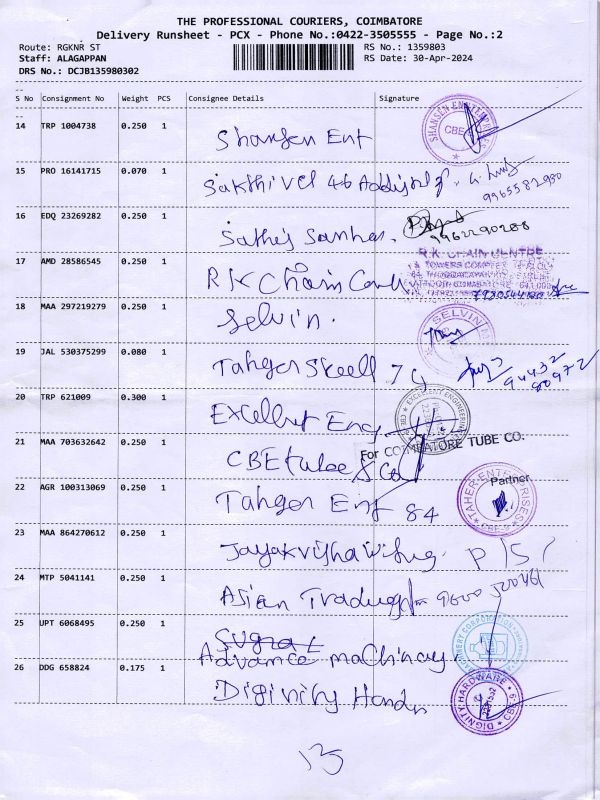 THE PROFESSIONAL COURIERS, COIMBATORE
Delivery Runsheet - PCX - Phone No.:0422-3505555 - Page No.:2
Route: RGKNR ST RS No.: 1359803
Staff: ALAGAPPAN RS Date: 30-Apr-2024
DRS No.: DCJB135980302
S No Consignment No Weight PCS Consignee Details Signature
14 TRP 1004738 0.250 1 Shansen Ent SHANSEN ENTERPRISES CBE
15 PRO 16141715 0.070 1 Sakthivel 46 9965582980
16 EDQ 23269282 0.250 1 9962290288
17 AMD 28586545 0.250 1 RK Chain R.K. CHAIN CENTRE
18 MAA 297219279 0.250 1 Selvin. SELVIN
19 JAL 530375299 0.080 1 Taher 79 94432 80972
20 TRP 621009 0.300 1 Excellent Eng. EXCELLENT ENGINEERING
21 MAA 703632642 0.250 1 CBE tube & Co For COIMBATORE TUBE CO.
Partner
22 AGR 100313069 0.250 1 Taher Ent 84 TAHER ENTERPRISES CBE-9
23 MAA 864270612 0.250 1
24 MTP 5041141 0.250 1 Asian
25 UPT 6068495 0.250 1 Advance machinary MACHINERY CORPORATION
26 DDG 658824 0.175 1 Diginity Hardn DIGNITY HARDWARE